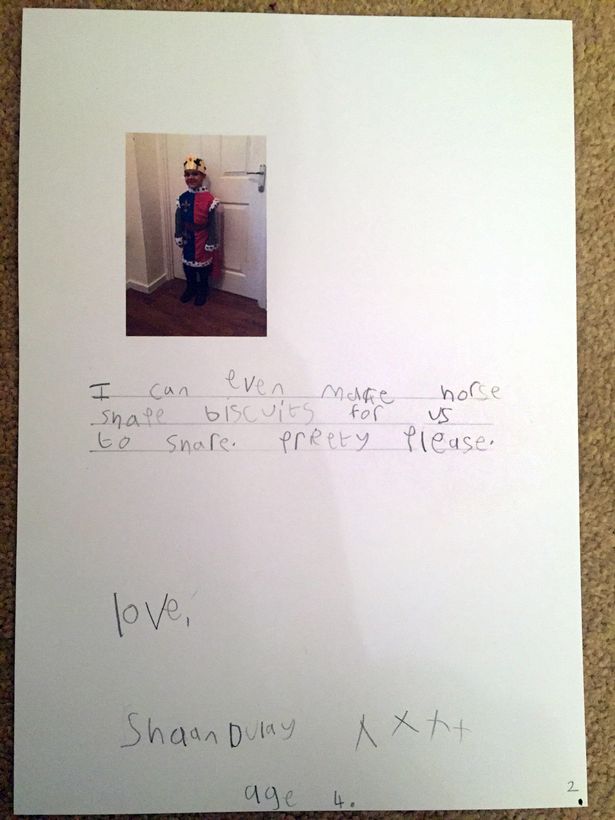 I can even make horse
shape biscuits for us
to share. pretty please.
love,
Shaan Dulay x x x x
age 4.
2